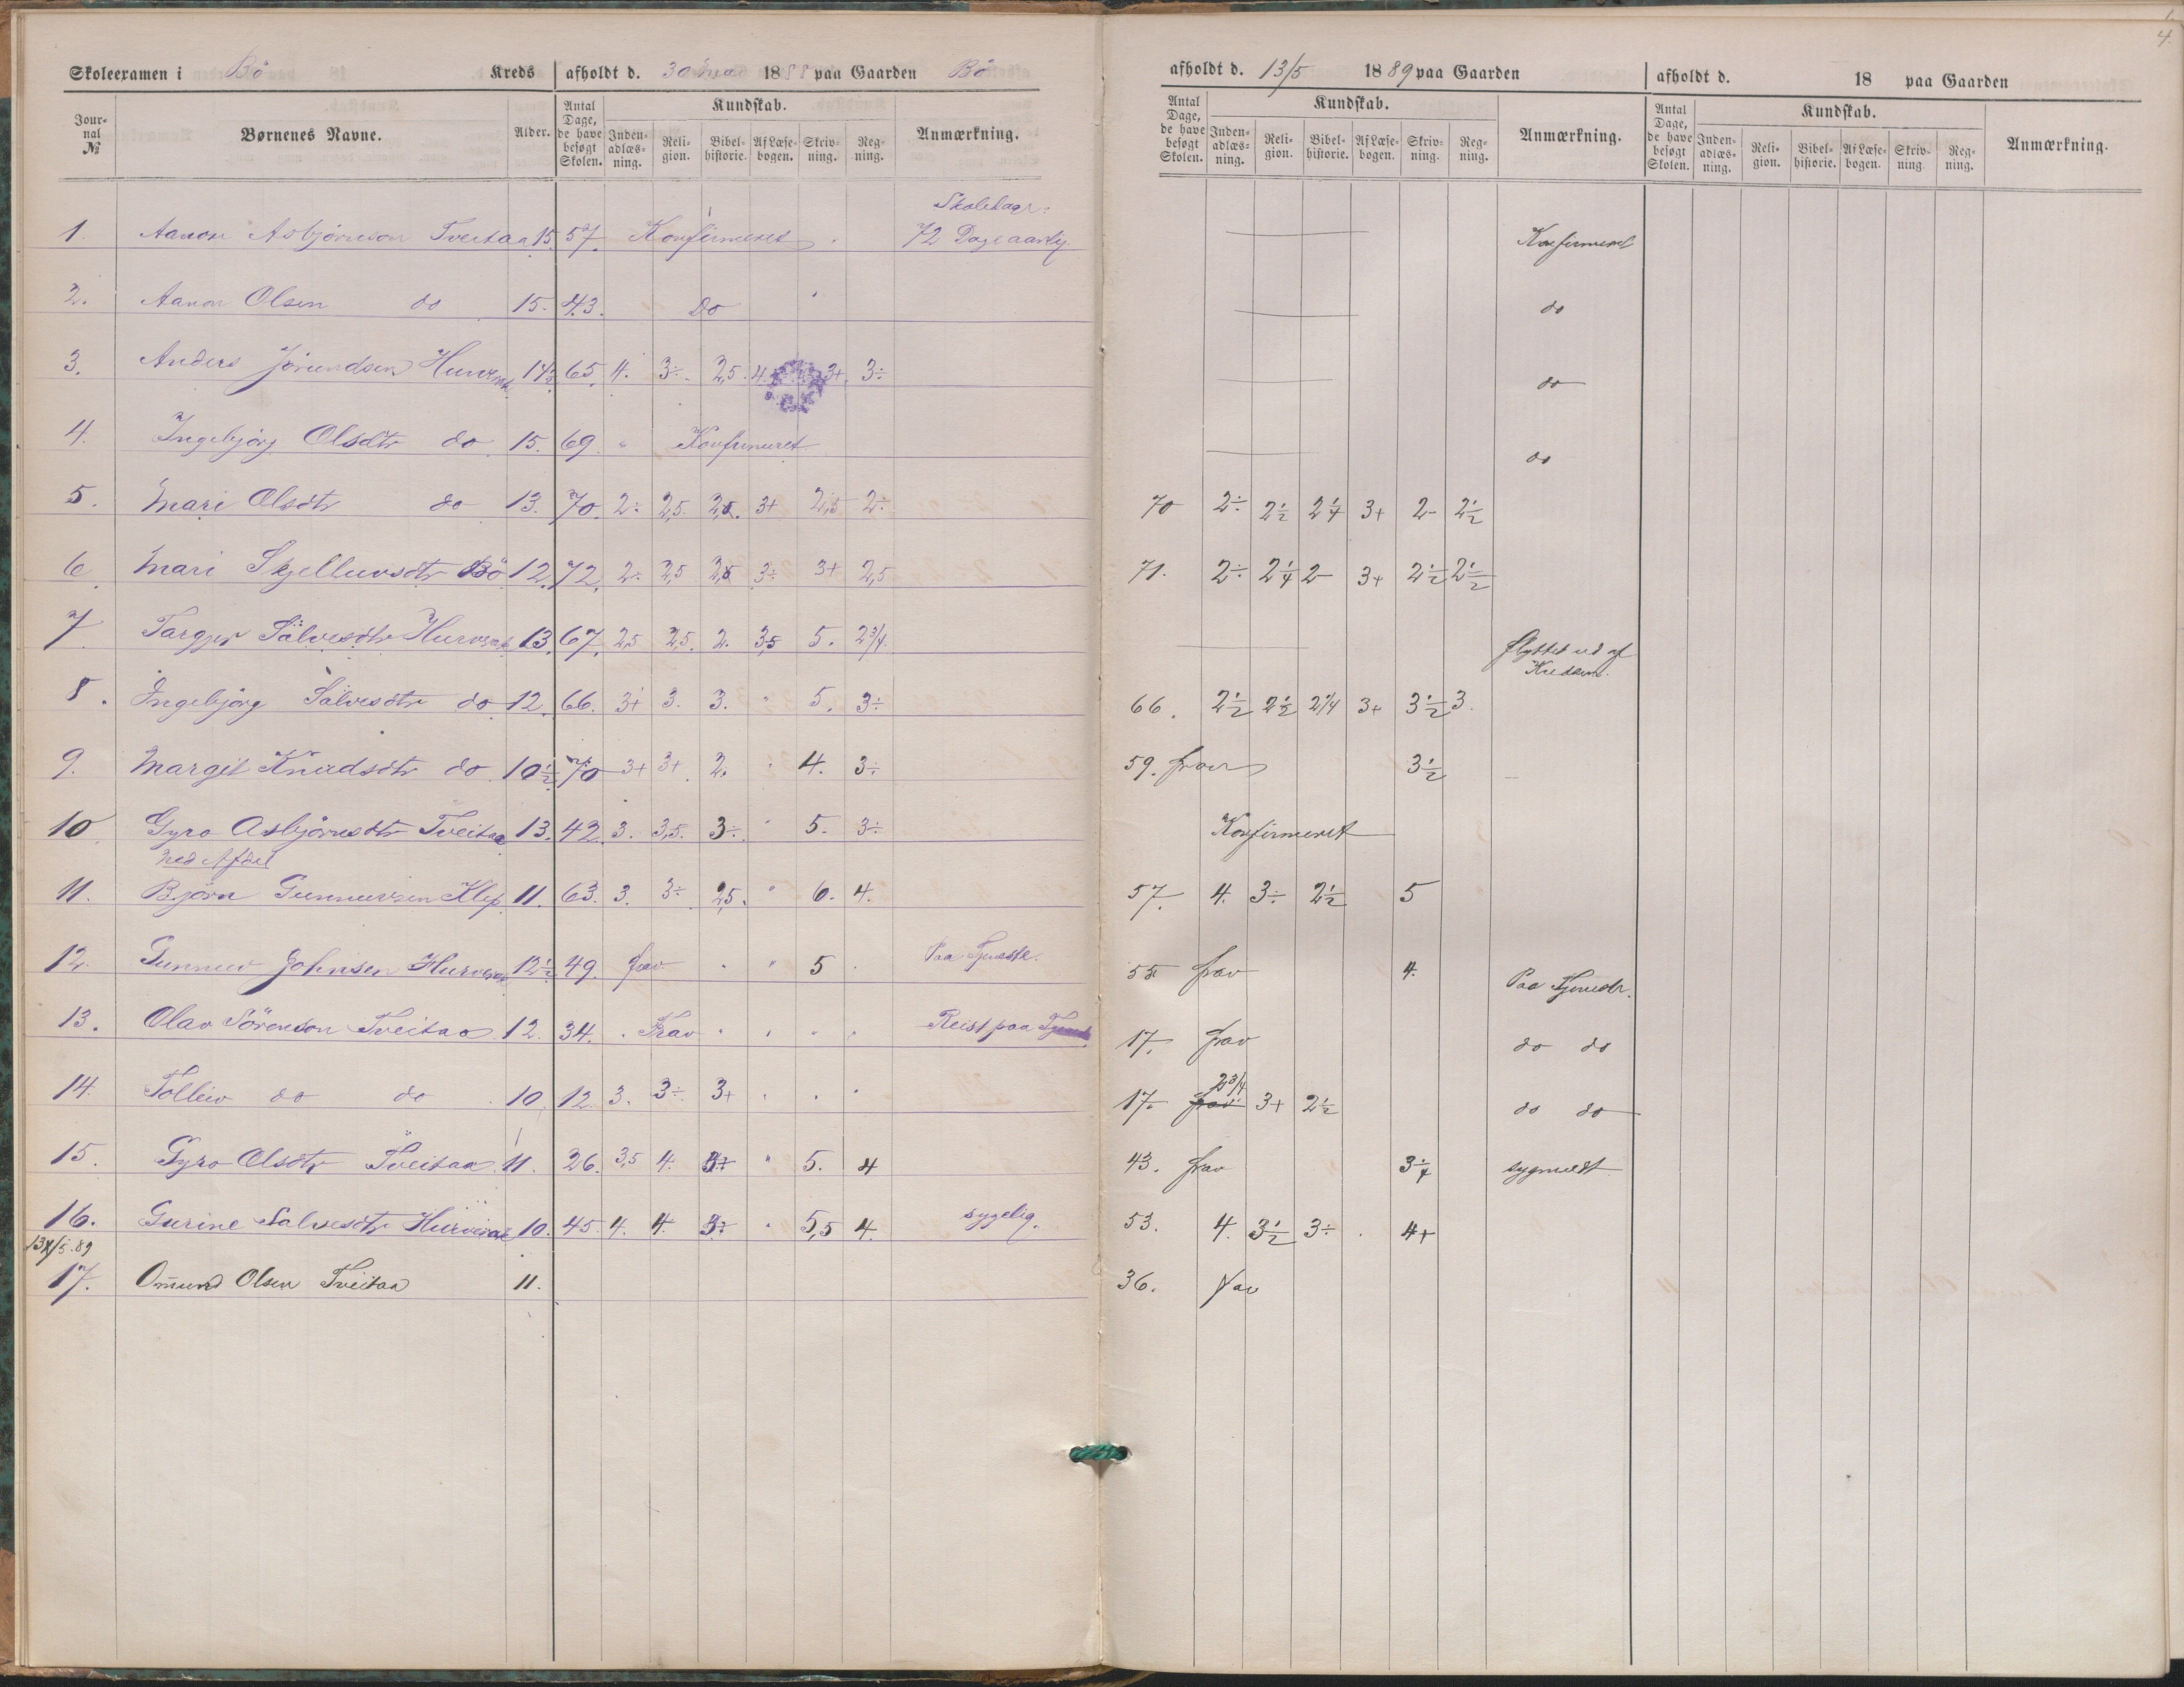 4.
Skoleexamen i Bö Kreds afholdt d. 30 mai 1888 paa Gaarden Bö
Jour-nal № Børnenes Navne. Alder. Antal Dage, de have besøgt Skolen. Kundskab. Inden-adlæs-ning. Reli-gion. Bibel-historie. Af Læse-bogen. Skriv-ning. Reg-ning. Anmærkning.
Skoledage:
1. Aanon Asbjörnson Tveitaa 15. 57. Konfirmeret 72 Dage aarlig.
2. Aanon Olsen do 15. 43. Do
3. Anders Jörundsen 14½ 65. 4. 3÷ 2,5 4. 3+ 3÷
4. Ingebjörg Olsdtr do 15. 69. " Konfirmeret
5. Mari Olsdtr do 13. 70. 2÷ 2,5. 2,5. 3+ 2,5 2÷
6. Mari Skjelluvsdtr Bö 12. 72. 2÷ 2,5 2,5 3÷ 3+ 2,5
7. Targjer Sälvesdtr 13. 67. 2,5 2,5. 2. 3,5 5. 2¾.
8. Ingebjörg Sälvesdtr do 12. 66. 3+ 3. 3. " 5. 3÷
9. Margit Knudsdtr do 10½ 70 3+ 3+ 2. " 4. 3÷
10. Gyro Asbjörnsdtr Tveitaa 13. 42. 3. 3,5. 3÷ " 5. 3÷
ned Afdel
11. Björn Gunnuvsen Klep 11. 63. 3. 3÷ 2,5. " 6. 4.
12. Gunnuv Johnsen 12½ 49. frav. " " 5 . Paa Tjeneste.
13. Olav Sörenson Tveitaa 12. 34. . Frav " " " " Reist paa
14. Tolleiv do do 10. 12. 3. 3÷ 3+ " " "
15. Gyro Olsdtr Tveitaa 11. 26. 3,5 4. " 5. 4
16. Gurine Salvesdtr 10. 45. 4. 4. " 5,5 4. sygelig.
13/5.89
17. Ommund Olsen Tveitaa 11.
afholdt d. 13/5 1889 paa Gaarden
Antal Dage, de have besøgt Skolen. Kundskab. Inden-adlæs-ning. Reli-gion. Bibel-historie. Af Læse-bogen. Skriv-ning. Reg-ning. Anmærkning.
Konfirmeret
do
do
do
70 2÷ 2½ 2¼ 3+ 2- 2½
71. 2÷ 2¼ 2- 3+ 2½ 2½
flyttet ud af
Kredsen.
66. 2½ 2½ 2¼ 3+ 3½ 3.
59. frav 3½
Konfirmeret
57. 4. 3÷ 2½ 5
55 frav 4. Paa Tjeneste.
17. frav do do
17. frav 2¾ 3+ 2½ do do
43. frav 3¼ sygmeldt
53. 4. 3½ 3÷ . 4+
36. frav
afholdt d. 18 paa Gaarden
Antal Dage, de have besøgt Skolen. Kundskab. Inden-adlæs-ning. Reli-gion. Bibel-historie. Af Læse-bogen. Skriv-ning. Reg-ning. Anmærkning.